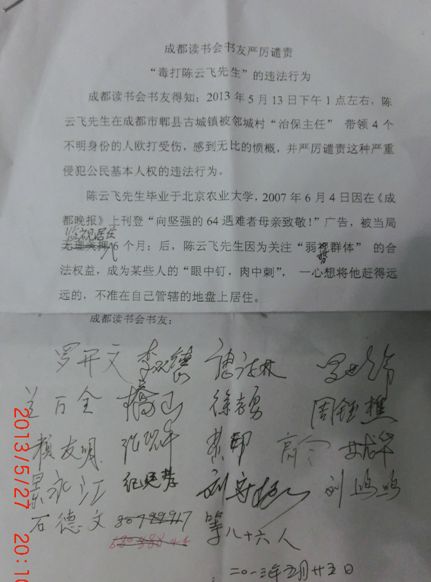 成都读书会书友严厉谴责
“毒打陈云飞先生”的违法行为
成都读书会书友得知：2013年5月13日下午1点左右，陈
云飞先生在成都市郫县古城镇被邻城村“治保主任” 带领4个
不明身份的人殴打受伤，感到无比的愤概，并严厉谴责这种严重
侵犯公民基本人权的违法行为。
陈云飞先生毕业于北京农业大学，2007年6月4日因在《成
都晚报》上刊登“向坚强的64遇难者母亲致敬!”广告，被当局
监视居住
6个月；后，陈云飞先生因为关注“弱势群体” 的合
法权益，成为某些人的“眼中钉，肉中刺”， 一心想将他赶得远
远的，不准在自己管辖的地盘上居住。
成都读书会书友：
罗开文
万全 徐 周钰樵
赖友明
永江 刘
石德文 等八十六人
二〇一三年五月廿五日
2013/5/27 20:1